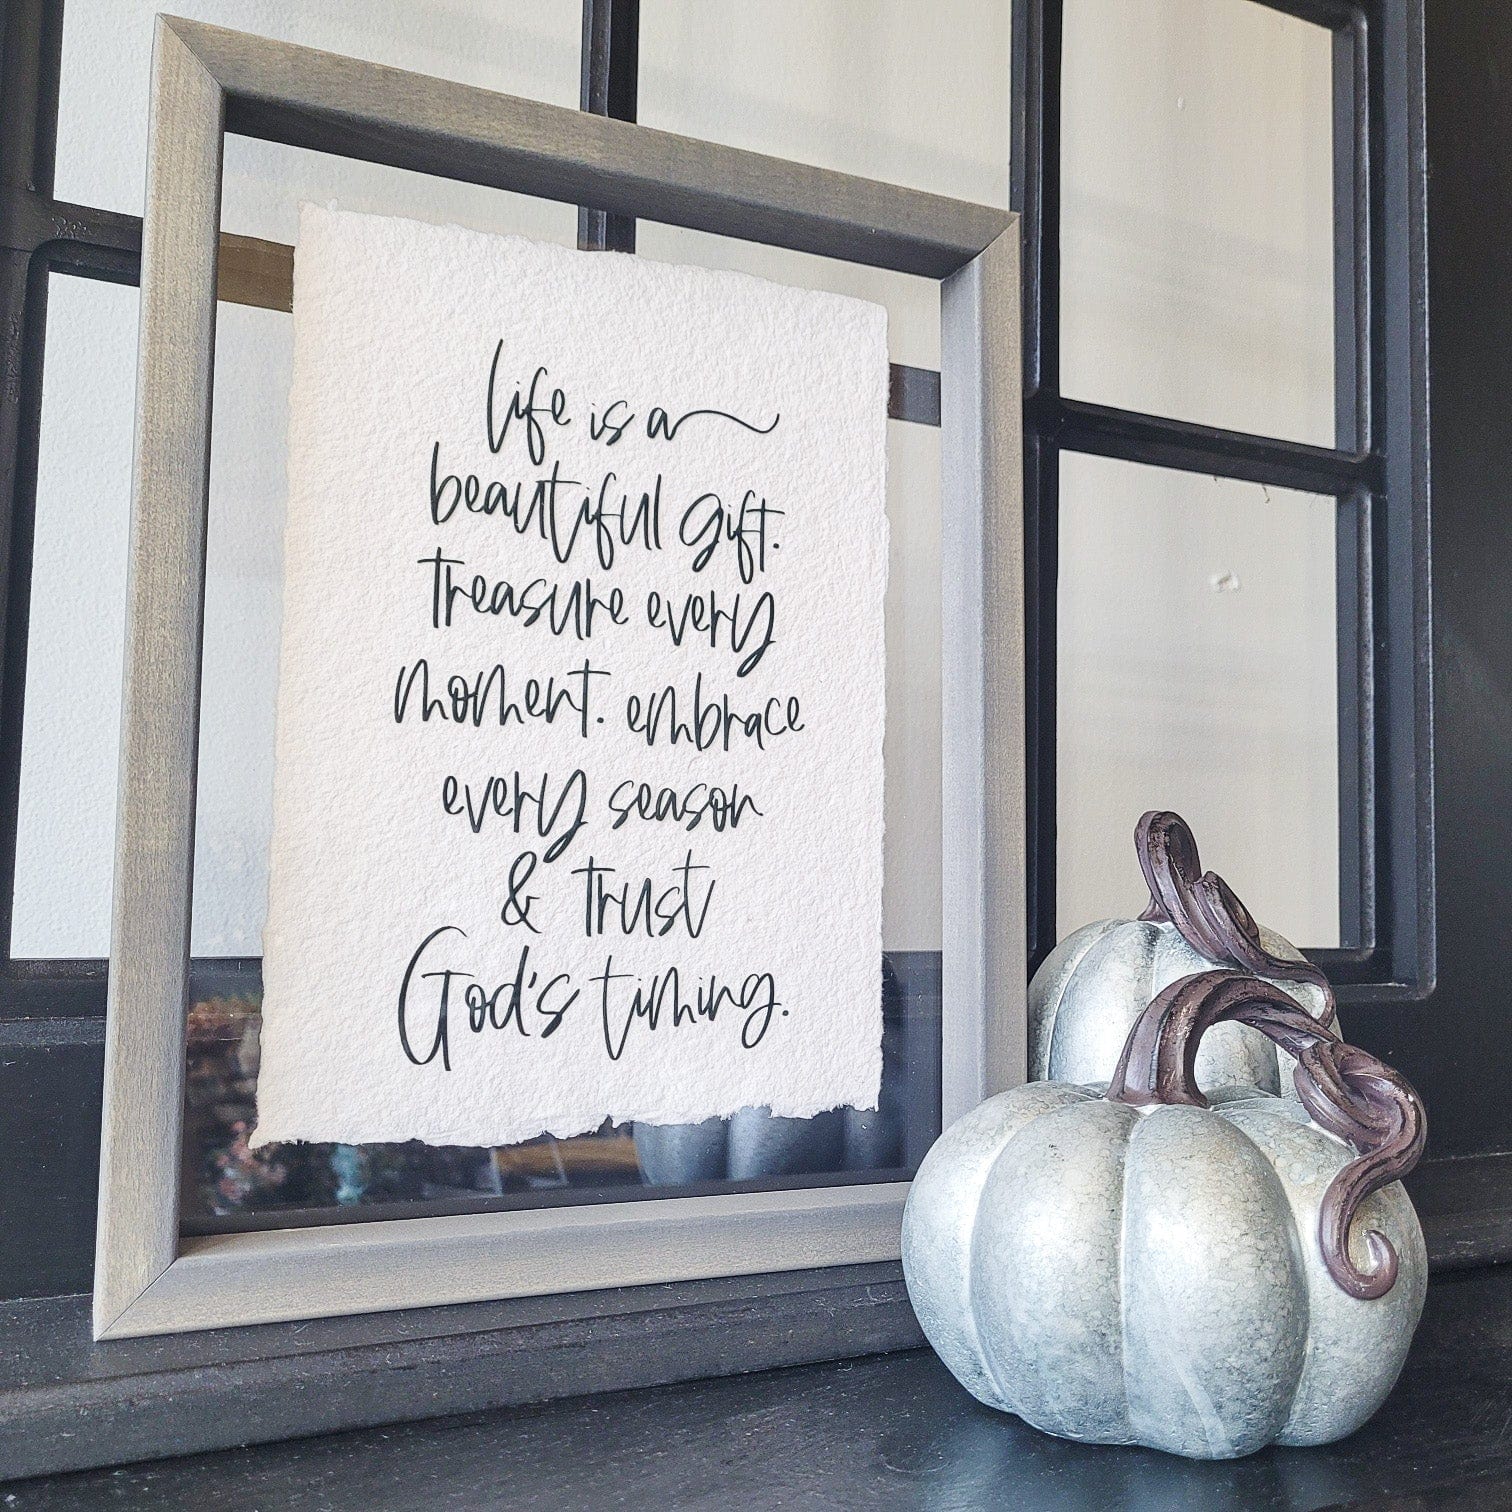 life is a
beautiful gift.
treasure every
moment. embrace
every season
& trust
God's timing.